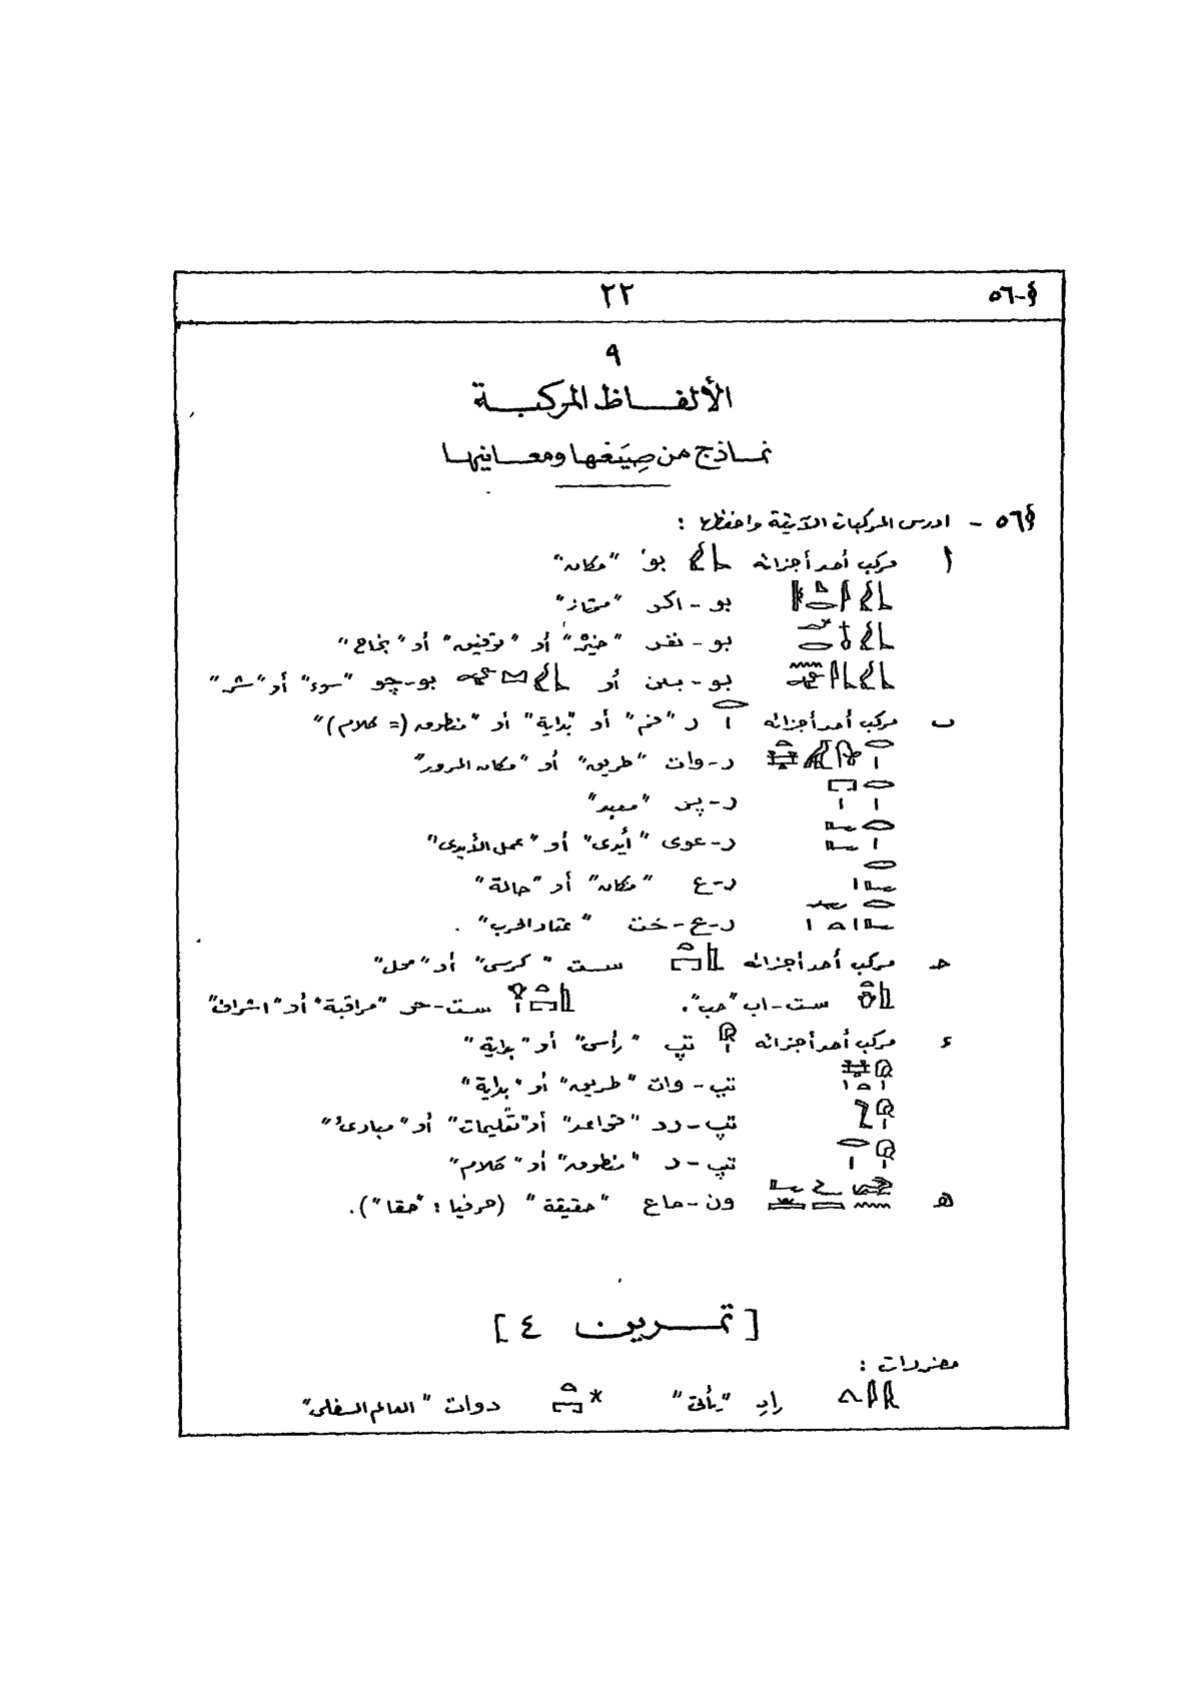 §-٥٦
٢٢
٩
الألفاظ المركبة
نماذج من صِيَغها ومعانيها
§٥٦ - ادرس المركبات الآتية واحفظها :
أ مركب أحد أجزائه بو "مكان"
بو - اكر "ممتاز"
بو - نفر "خيْر" أو "توفيق" أو "نجاح"
بو - بين أو بو-چو "سوء" أو "شر"
ب مركب أحد أجزائه ر "فم" أو "بداية" أو "منطوق (= كلام)"
ر-وات "طريق" أو "مكان المرور"
ر-پر "معبد"
ر-عوى "أيدى" أو "عمل الأيدى"
ر-ع "مكان" أو "حالة"
ر-ع-خت "عتاد الحرب" .
حـ مركب أحد أجزائه ست "كرسى" أو "محل"
ست-اب "حب". ست-حر "مراقبة" أو "اشراف"
ء مركب أحد أجزائه تپ "رأس" أو "بداية"
تپ-وات "طريق" أو "بداية"
تپ-رد "قواعد" أو "تعليمات" أو "مبادئ"
تپ-ر "منطوق" أو "كلام"
هـ ون-ماع "حقيقة" (حرفيا : "حقا").
[تمرين ٤]
مفردات :
"يأتى" دوات "العالم السفلى"